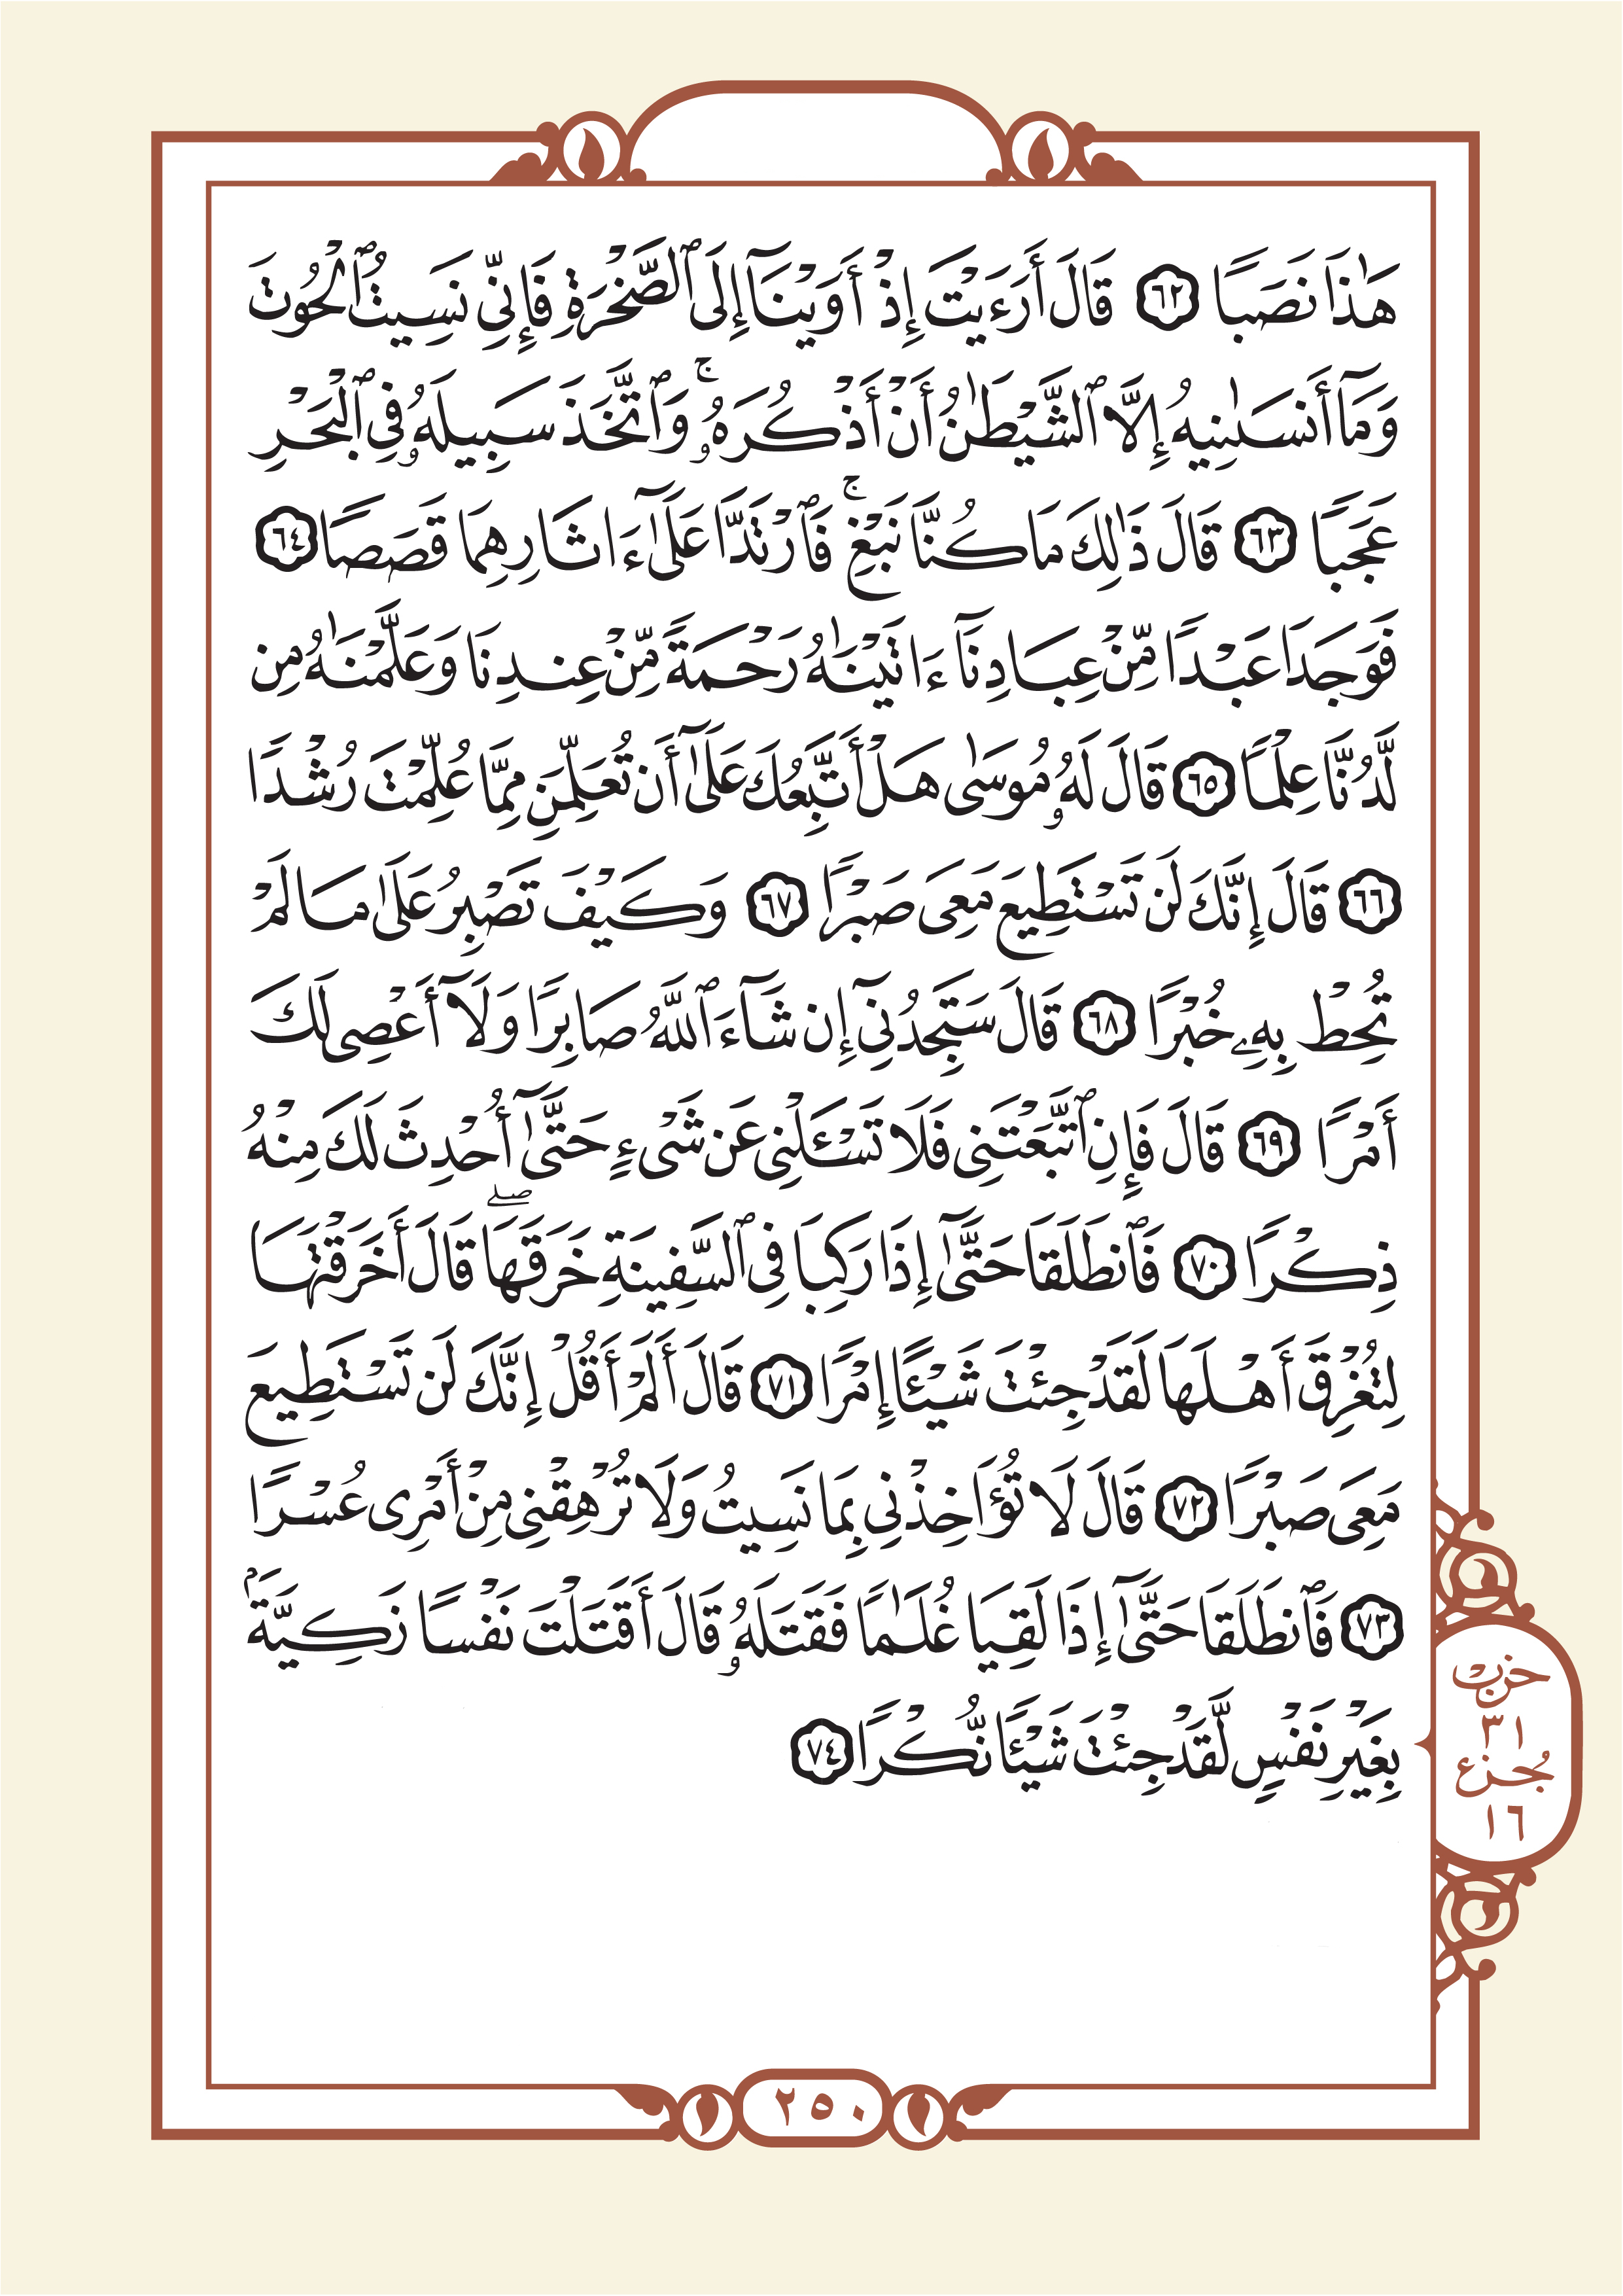 هَٰذَا نَصَبًا ٦٢ قَالَ أَرَءَيْتَ إِذْ أَوَيْنَآ إِلَى ٱلصَّخْرَةِ فَإِنِّى نَسِيتُ ٱلْحُوتَ
وَمَآ أَنسَىٰنِيهُ إِلَّا ٱلشَّيْطَٰنُ أَنْ أَذْكُرَهُۥ ۚ وَٱتَّخَذَ سَبِيلَهُۥ فِى ٱلْبَحْرِ
عَجَبًا ٦٣ قَالَ ذَٰلِكَ مَا كُنَّا نَبْغِ ۚ فَٱرْتَدَّا عَلَىٰٓ ءَاثَارِهِمَا قَصَصًا ٦٤
فَوَجَدَا عَبْدًا مِّنْ عِبَادِنَآ ءَاتَيْنَٰهُ رَحْمَةً مِّنْ عِندِنَا وَعَلَّمْنَٰهُ مِن
لَّدُنَّا عِلْمًا ٦٥ قَالَ لَهُۥ مُوسَىٰ هَلْ أَتَّبِعُكَ عَلَىٰٓ أَن تُعَلِّمَنِ مِمَّا عُلِّمْتَ رُشْدًا
٦٦ قَالَ إِنَّكَ لَن تَسْتَطِيعَ مَعِىَ صَبْرًا ٦٧ وَكَيْفَ تَصْبِرُ عَلَىٰ مَا لَمْ
تُحِطْ بِهِۦ خُبْرًا ٦٨ قَالَ سَتَجِدُنِىٓ إِن شَآءَ ٱللَّهُ صَابِرًا وَلَآ أَعْصِى لَكَ
أَمْرًا ٦٩ قَالَ فَإِنِ ٱتَّبَعْتَنِى فَلَا تَسْـَٔلْنِى عَن شَىْءٍ حَتَّىٰٓ أُحْدِثَ لَكَ مِنْهُ
ذِكْرًا ٧٠ فَٱنطَلَقَا حَتَّىٰٓ إِذَا رَكِبَا فِى ٱلسَّفِينَةِ خَرَقَهَا ۖ قَالَ أَخَرَقْتَهَا
لِتُغْرِقَ أَهْلَهَا لَقَدْ جِئْتَ شَيْـًٔا إِمْرًا ٧١ قَالَ أَلَمْ أَقُلْ إِنَّكَ لَن تَسْتَطِيعَ
مَعِىَ صَبْرًا ٧٢ قَالَ لَا تُؤَاخِذْنِى بِمَا نَسِيتُ وَلَا تُرْهِقْنِى مِنْ أَمْرِى عُسْرًا
٧٣ فَٱنطَلَقَا حَتَّىٰٓ إِذَا لَقِيَا غُلَٰمًا فَقَتَلَهُۥ قَالَ أَقَتَلْتَ نَفْسًا زَكِيَّةًۢ
بِغَيْرِ نَفْسٍ لَّقَدْ جِئْتَ شَيْـًٔا نُّكْرًا ٧٤
حزب
٣١
جزء
١٦
٢٥٠